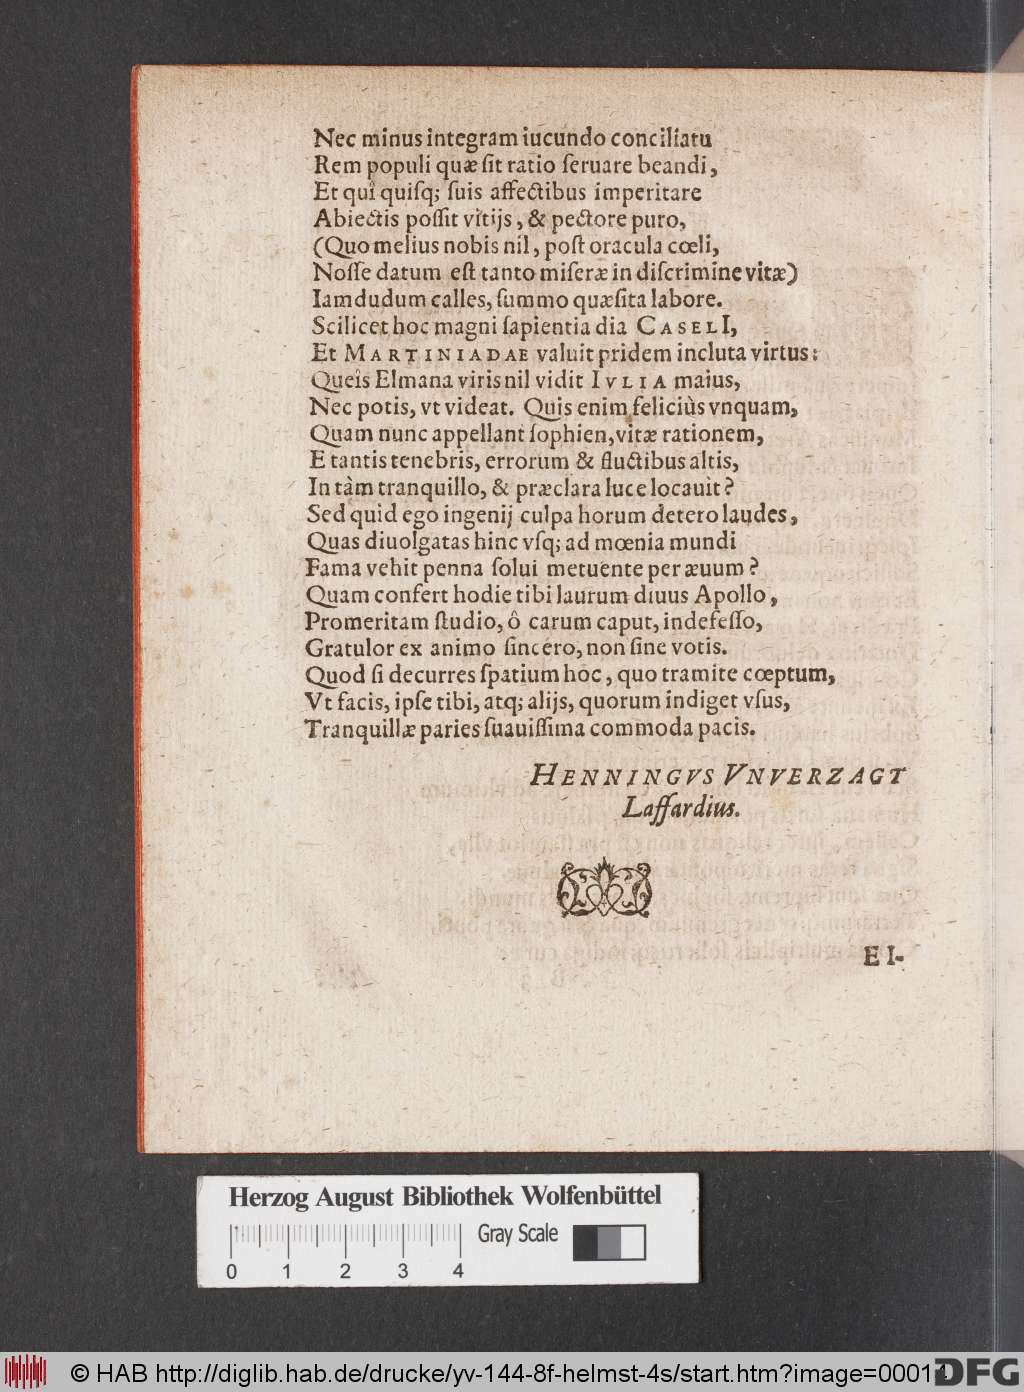 Nec minus integram iucundo conciliatu
Rem populi quæ sit ratio seruare beandi,
Et quî quisq; suis affectibus imperitare
Abiectis possit vitijs, & pectore puro,
(Quo melius nobis nil, post oracula cœli,
Nosse datum est tanto miseræ in discrimine vitæ)
Iamdudum calles, summo quæsita labore.
Scilicet hoc magni sapientia dia CASELI,
Et MARTINIADAE valuit pridem incluta virtus:
Queîs Elmana viris nil vidit IVLIA maius,
Nec potis, vt videat. Quis enim feliciùs vnquam,
Quam nunc appellant sophien, vitæ rationem,
E tantis tenebris, errorum & fluctibus altis,
In tàm tranquillo, & præclara luce locauit?
Sed quid ego ingenij culpa horum detero laudes,
Quas diuolgatas hinc vsq; ad mœnia mundi
Fama vehit penna solui metuente per æuum?
Quam confert hodie tibi laurum diuus Apollo,
Promeritam studio, ô carum caput, indefesso,
Gratulor ex animo sincero, non sine votis.
Quod si decurres spatium hoc, quo tramite cœptum,
Vt facis, ipse tibi, atq; alijs, quorum indiget vsus,
Tranquillæ paries suauissima commoda pacis.
HENNINGVS VNVERZAGT
Laffardius.
EI-
Herzog August Bibliothek Wolfenbüttel
Gray Scale
0 1 2 3 4
© HAB http://diglib.hab.de/drucke/yv-144-8f-helmst-4s/start.htm?image=00014
DFG